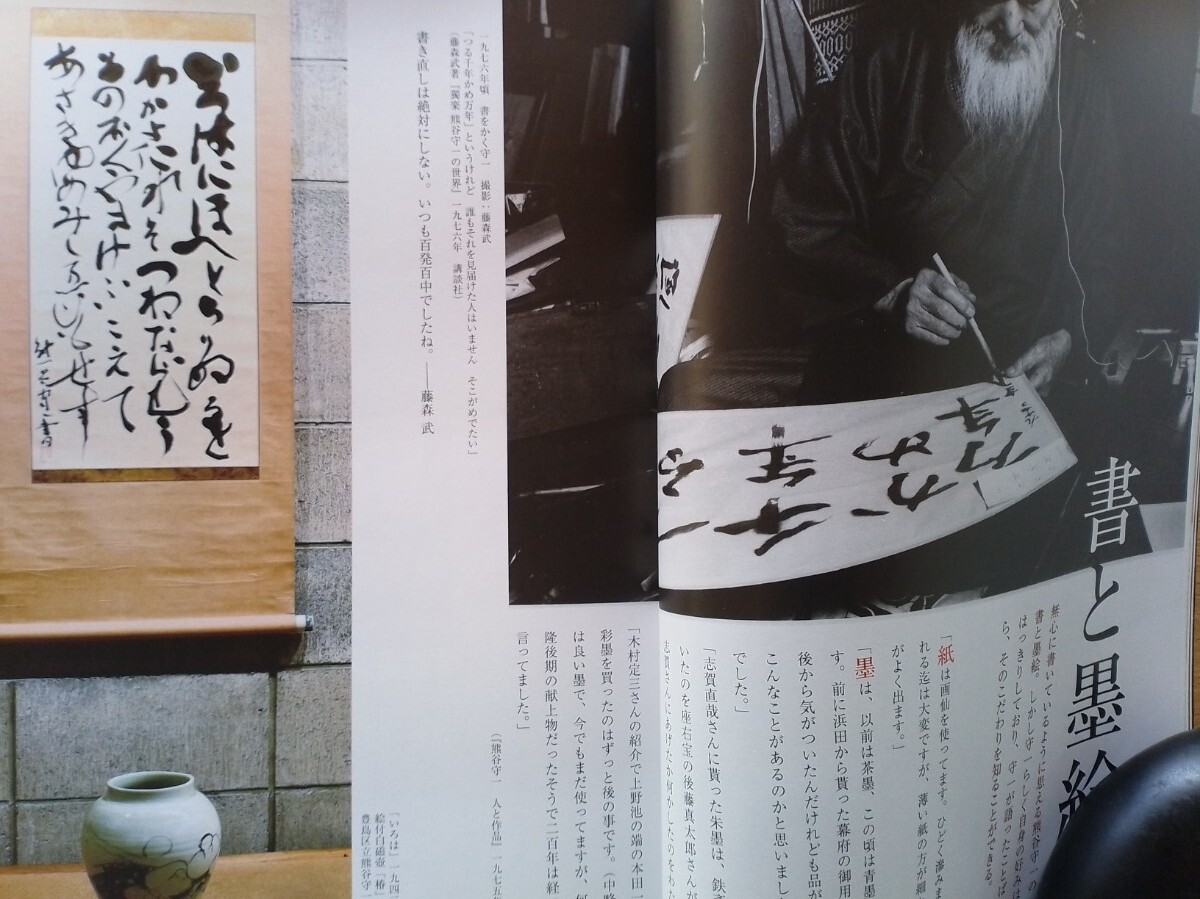 書と墨絵
無心に書いているように思える熊谷守一の
書と墨絵。しかし守一らしく自身の好みは
はっきりしており、守一が語ったことば
ら、そのこだわりを知ることができる。
「紙は画仙を使ってます。ひどく滲みま
れる迄は大変ですが、薄い紙の方が細か
がよく出ます。」
「墨は、以前は茶墨、この頃は青墨
す。前に浜田から貰った幕府の御用
後から気がついたんだけれども品が
こんなことがあるのかと思いまし
でした。」
「志賀直哉さんに貰った朱墨は、鉄斎
いたのを座右宝の後藤真太郎さんが
志賀さんにあげたか何かしたのをわた
「木村定三さんの紹介で上野池の端の本田一
彩墨を買ったのはずっと後の事です。(中略
は良い墨で、今でもまだ使ってますが、何
隆後期の献上物だったそうで二百年は経
言ってました。」
(『熊谷守一 人と作品』一九七五年
千年
かめ
万年
一九七六年頃 書をかく守一 撮影:藤森武
「つる千年かめ万年」というけれど 誰もそれを見届けた人はいません そこがめでたい」
(藤森武著『獨楽 熊谷守一の世界』一九七六年 講談社)
書き直しは絶対にしない。いつも百発百中でしたね。——藤森 武
「いろは」一九四
絵付白磁壺「椿」
豊島区立熊谷守
いろはにほへとちりぬるを
わかよたれそつねならむ
うゐのおくやまけふこえて
あさきゆめみしゑひもせす